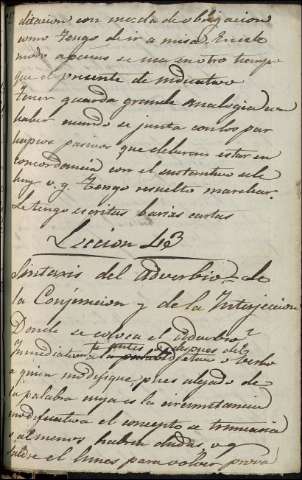 ditacion con mezcla de obligacion
como tengo de ir a misa. En este
modo apenas se usa en otro tiempo
que el presente de indicativo
Tener guarda grande analogia con
haber cuando se junta con los par
pasivos que deberan estar en
concordancia con el sustantivo
v.g. Tengo resuelto marchar.
Le tengo escritas barias cartas
Leccion 43
Sintaxis del adverbio de
la Conjuncion y de la Interjeccion
Donde se coloca el adverbio?
Inmediatam antes o despues del
a quien modifique, pues alejado de
la palabra cuya es la circunstancia
modificativa el concepto se
o al menos habra dudas, v.g.
el lunes para volver